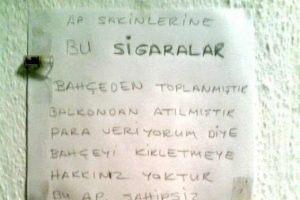 AP SAKİNLERİNE
BU SİGARALAR
BAHÇEDEN TOPLANMIŞTIR
BALKONDAN ATILMIŞTIR
PARA VERİYORUM DİYE
BAHÇEYİ KİRLETMEYE
HAKKINIZ YOKTUR
BU AP. SAHİPSİZ